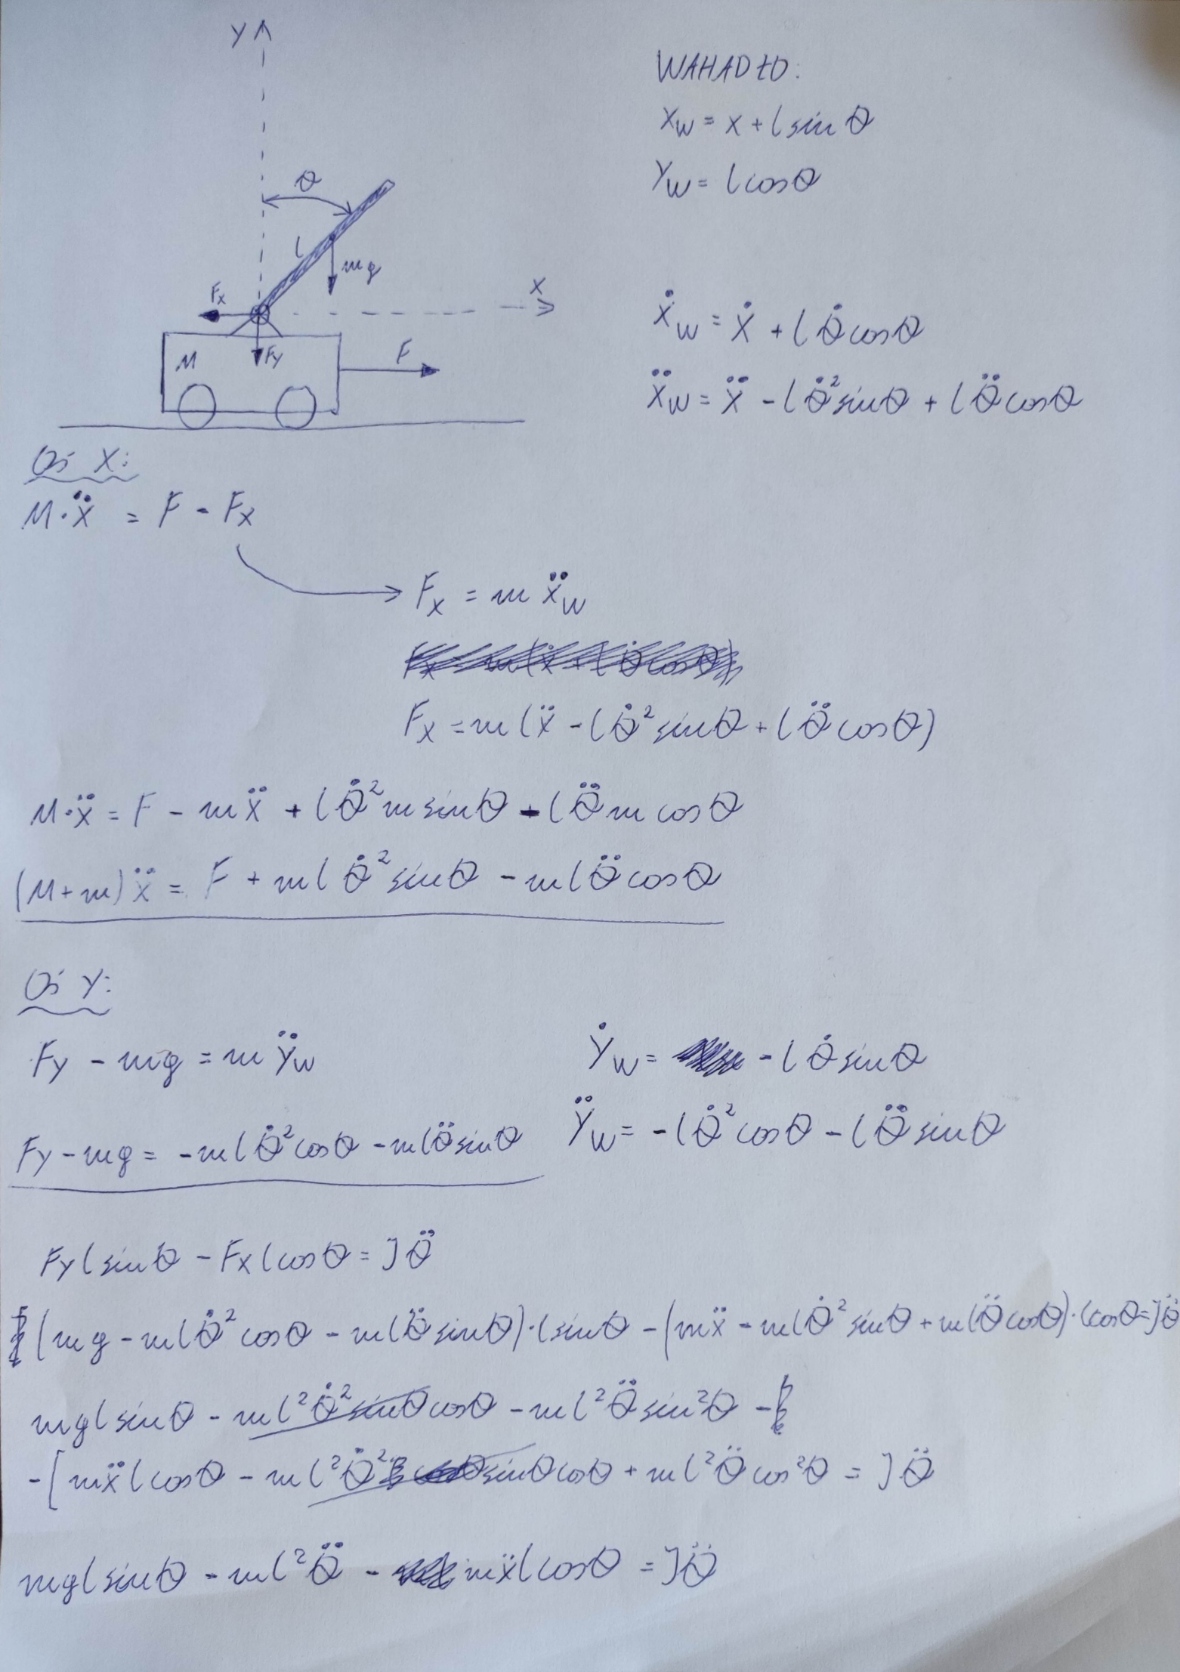 Y
WAHADŁO:
x_W = x + l sin θ
Y_W = l cos θ
θ
l
mg
F_x
X
M
F_y
F
ẋ_W = ẋ + l θ̇ cos θ
ẍ_W = ẍ - l θ̈² sin θ + l θ̈ cos θ
Oś X:
M·ẍ = F - F_x
F_x = m ẍ_W
F_x = m (ẍ - l θ̇² sin θ + l θ̈ cos θ)
M·ẍ = F - m ẍ + l θ̇² m sin θ - l θ̈ m cos θ
(M+m) ẍ = F + m l θ̇² sin θ - m l θ̈ cos θ
Oś Y:
F_y - mg = m Ÿ_W
Ẏ_W = - l θ̇ sin θ
Ÿ_W = - l θ̇² cos θ - l θ̈ sin θ
F_y - mg = - m l θ̇² cos θ - m l θ̈ sin θ
F_y l sin θ - F_x l cos θ = J θ̈
(mg - m l θ̇² cos θ - m l θ̈ sin θ)·l sin θ - (mẍ - m l θ̇² sin θ + m l θ̈ cos θ)·l cos θ = J θ̈
mgl sin θ - m l² θ̇² sin θ cos θ - m l² θ̈ sin² θ -
- [mẍ l cos θ - m l² θ̇² sin θ cos θ + m l² θ̈ cos² θ = J θ̈
mgl sin θ - m l² θ̈ - mẍ l cos θ = J θ̈